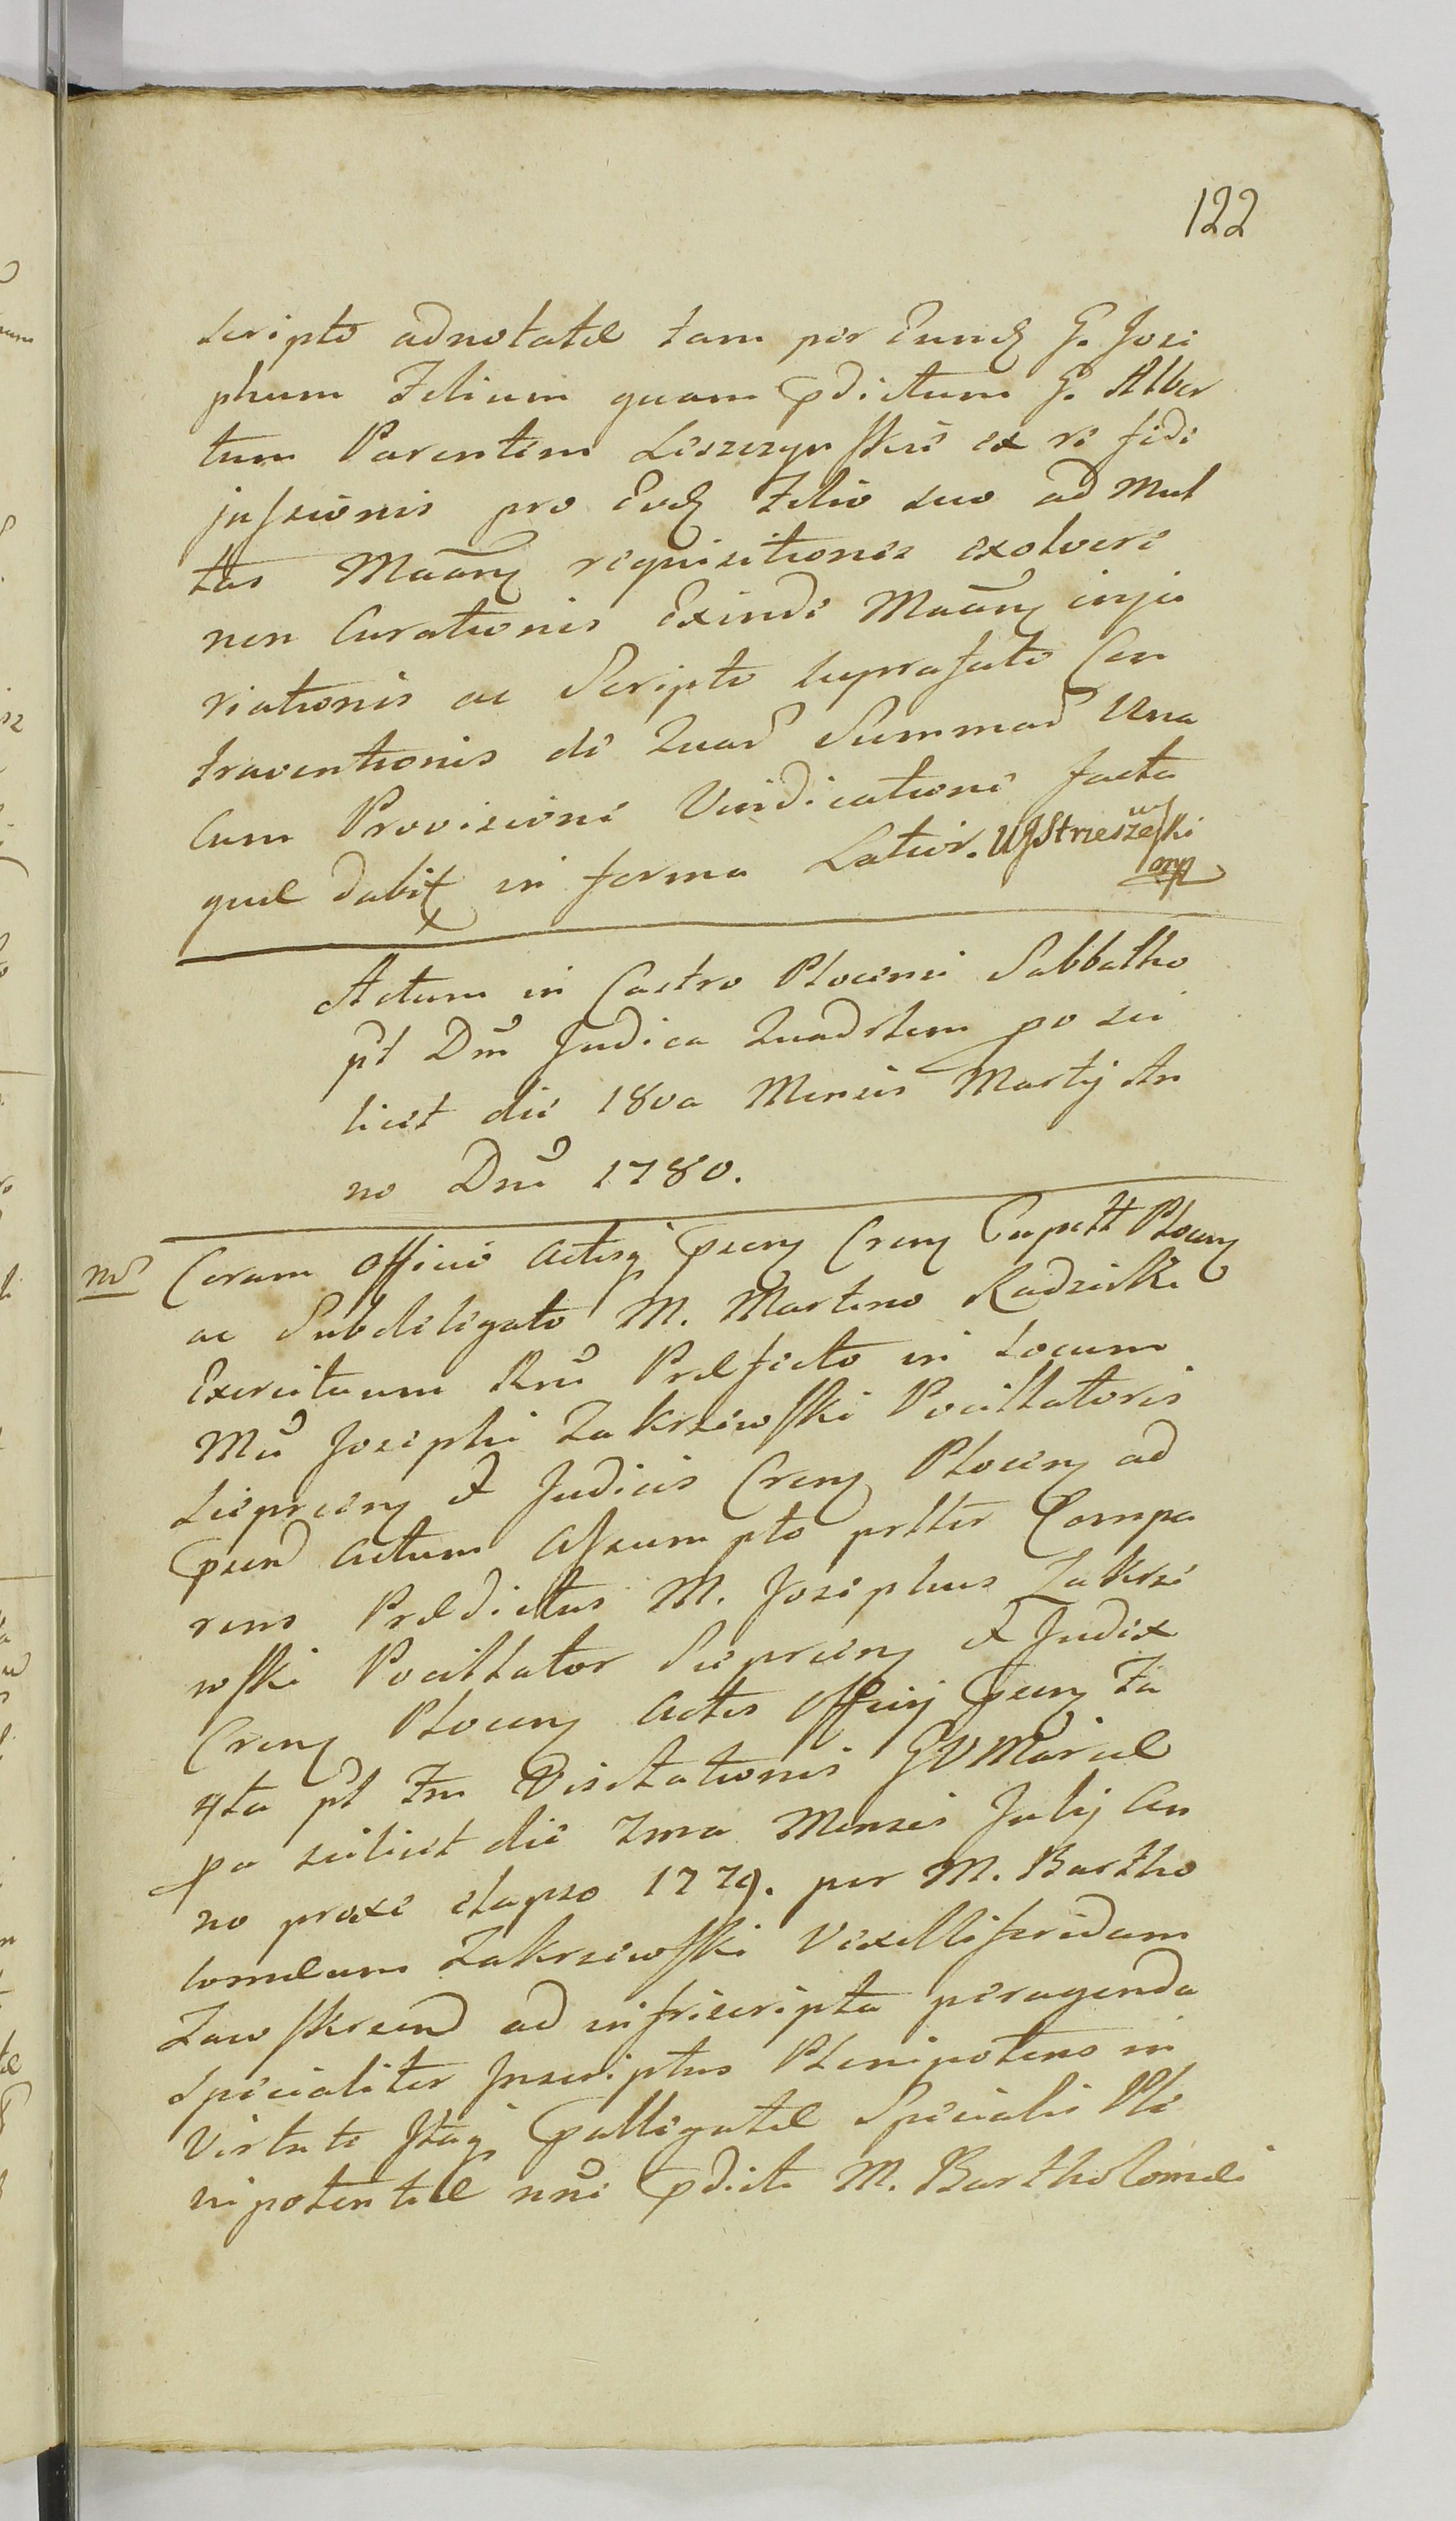 122
scripto adnotatæ tam per Eund G. Jose
phum Filium quam pdictum G. Alber
tum Parentem Leszczynskie ex re fide
jussionis pro Eod Filio suo ad mul
tas Maarum requisitiones exolvere
non Curationis Exinde Maarum inju
riationis ac Scripto suprafato Con
traventionis de Quad Summad Una
cum Provisione Vindicatione facta
quæ dabit in forma Latior. WJStrzeszewski
mp
Actum in Castro Plocensi Sabbatho
pt Dm̃ Judica Quadrlem po sci
licet die 18va Mensis Martij An
no Dnĩ 1780.
md Coram officio Actisq psen Cren Capitt Plocen
ac Subdelegato M. Martino Radzicki
Exercituum Rni Præfecto in Locum
Mci Josephi Zakrzewski Pocillatoris
Sieprcen & Judicis Cren Plocen ad
psend actum assumpto prltter Compa
rens Prædictus M. Josephus Zakrze
wski Pocillator Sieprcen & Judex
Cren Plocen Actis Officij psen Fa
qta pt Fm Visitationis GVMariæ
pa scilicet die 7ma Mensis Julij An
no proxe elapso 1779. per M. Bartho
lomæum Zakrzewski Vexilliferidam
Zawskrzend ad infrascripta peragenda
specialiter Inscriptus Plenipotens in
Virtute Itaq pallegatæ Specialis Ple
nipotentiæ nni pdicti M. Bartholomæi